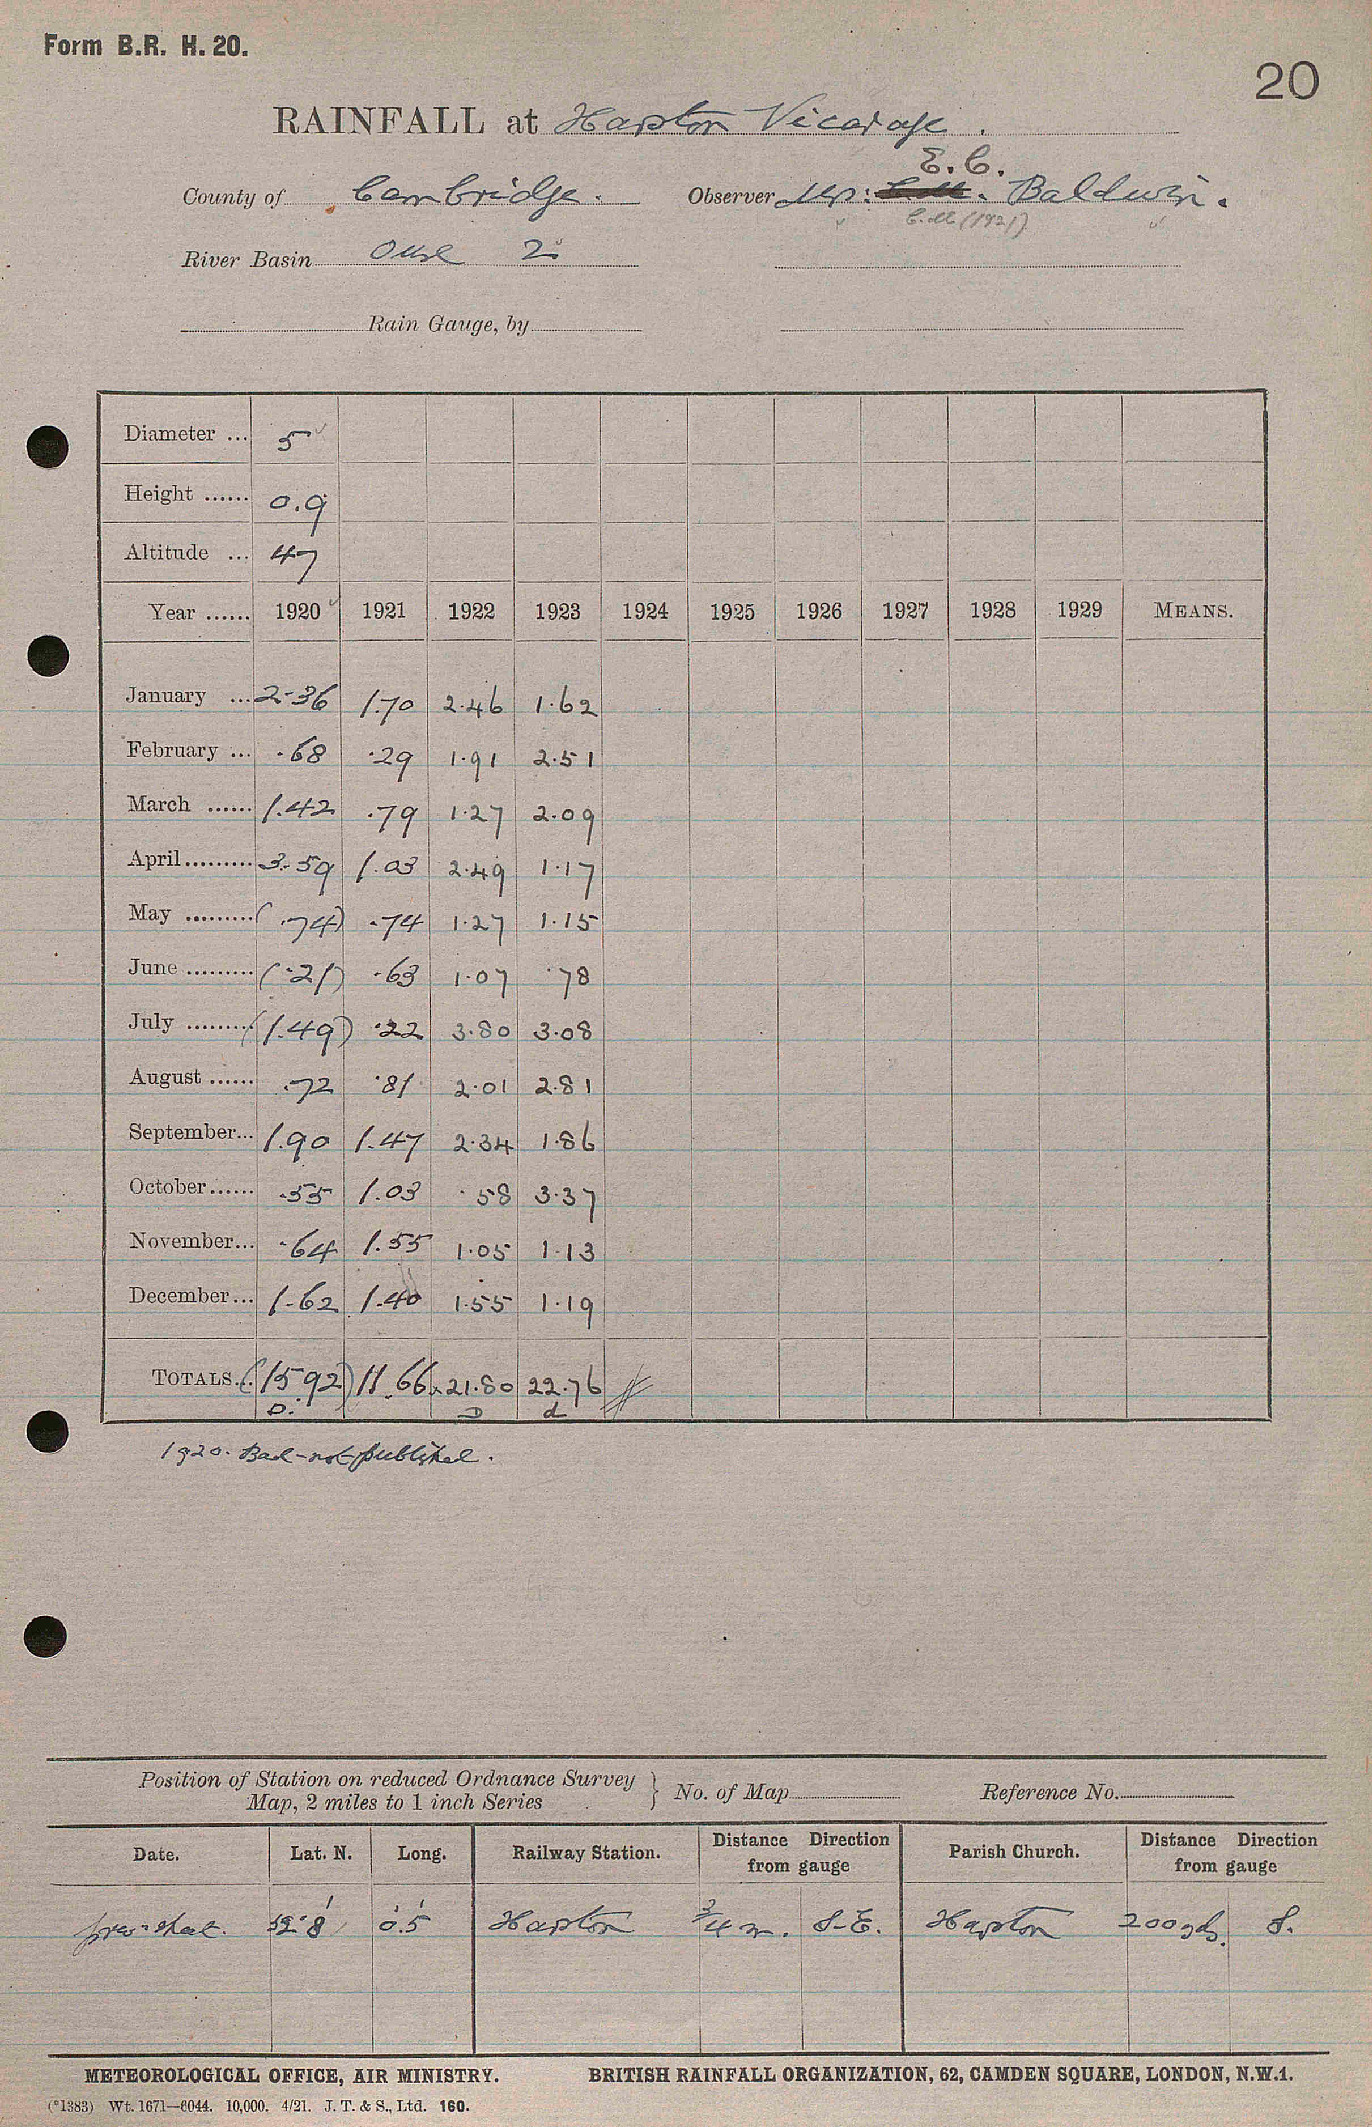 Form B.R. H. 20.
20
RAINFALL at Harston Vicarage.
E. C.
County of Cambridge. Observer Baldwin.
C.M (1921)
River Basin Ouse 2
Rain Gauge, by
Diameter ... 5
Height ...... 0.9
Altitude ... 47
Year ...... 1920 1921 1922 1923 1924 1925 1926 1927 1928 1929 MEANS.
January ... 2.36 1.70 2.46 1.62
February ... .68 .29 1.91 2.51
March ...... 1.42 .79 1.27 2.09
April ......... 3.59 1.03 2.49 1.17
May ......... (.74) .74 1.27 1.15
June ......... (.21) .63 1.07 .78
July ......... (1.49) .22 3.80 3.08
August ...... .72 .81 2.01 2.81
September... 1.90 1.47 2.34 1.86
October ...... .55 1.03 .58 3.37
November... .64 1.55 1.05 1.13
December... 1.62 1.40 1.55 1.19
TOTALS... (15.92) 11.66 21.80 22.76
D. D d
1920. Bad - not published.
Position of Station on reduced Ordnance Survey
Map, 2 miles to 1 inch Series } No. of Map Reference No.
Date. Lat. N. Long. Railway Station. Distance Direction from gauge Parish Church. Distance Direction from gauge
prev. sheet. 52° 8' 0° 5' Harston 3/4 m. S.E. Harston 200 yds. S.
METEOROLOGICAL OFFICE, AIR MINISTRY. BRITISH RAINFALL ORGANIZATION, 62, CAMDEN SQUARE, LONDON, N.W.1.
(*1383) Wt. 1671—6044. 10,000. 4/21. J. T. & S., Ltd. 160.